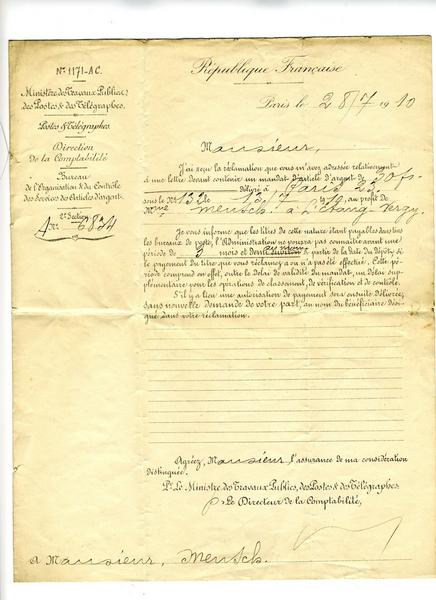 N° 1171-A.C.
Ministère des Travaux Publics,
des Postes & des Télégraphes.
Postes & Télégraphes
Direction
de la Comptabilité
Bureau
de l'Organisation & du Contrôle
des Services des Articles d'argent
2e Section
N° 6834
République Française
Paris le 28/7 1910
Monsieur,
J'ai reçu la réclamation que vous m'avez adressée relativement
à une lettre devant contenir un mandat d'article d'argent de 30 fr.
délivré à Paris 23
sous le N° 132 le 13/7 au profit de
Mme Meusch. à L'Etang-Vergy.
Je vous informe que les titres de cette nature étant payables dans tous
les bureaux de poste, l'Administration ne pourra pas connaître avant une
période de 5 mois et demi environ à partir de la date du dépôt, si
le paiement du titre que vous réclamez a ou n'a pas été effectué. Cette pé-
riode comprend en effet, outre le délai de validité du mandat, un délai sup-
plémentaire pour les opérations de classement, de vérification et de contrôle.
S'il y a lieu une autorisation de paiement sera ensuite délivrée,
sans nouvelle demande de votre part, au nom du bénéficiaire dési-
gné dans votre réclamation.
Agréez, Monsieur l'assurance de ma considération
distinguée.
Pr Le Ministre des Travaux Publics, des Postes & des Télégraphes
Le Directeur de la Comptabilité,
A Monsieur, Meusch.